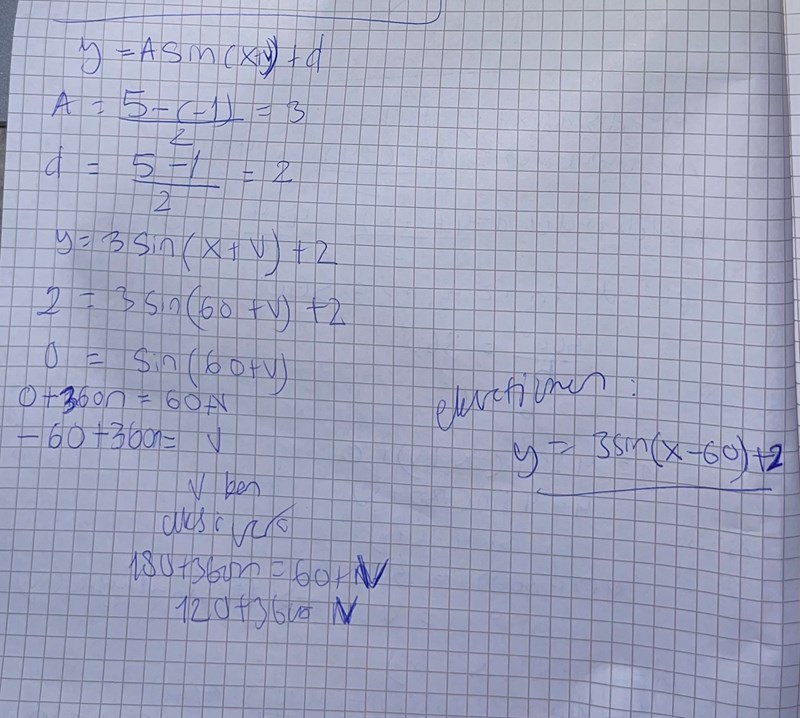 y = A sin(x+v) + d
A = 5-(-1) / 2 = 3
d = 5-1 / 2 = 2
y = 3 sin(x + v) + 2
2 = 3 sin(60 + v) + 2
0 = sin(60+v)
0+360n = 60+v
-60+360n = v
v
180+360n = 60+v
120+360 v
y = 3sin(x-60)+2